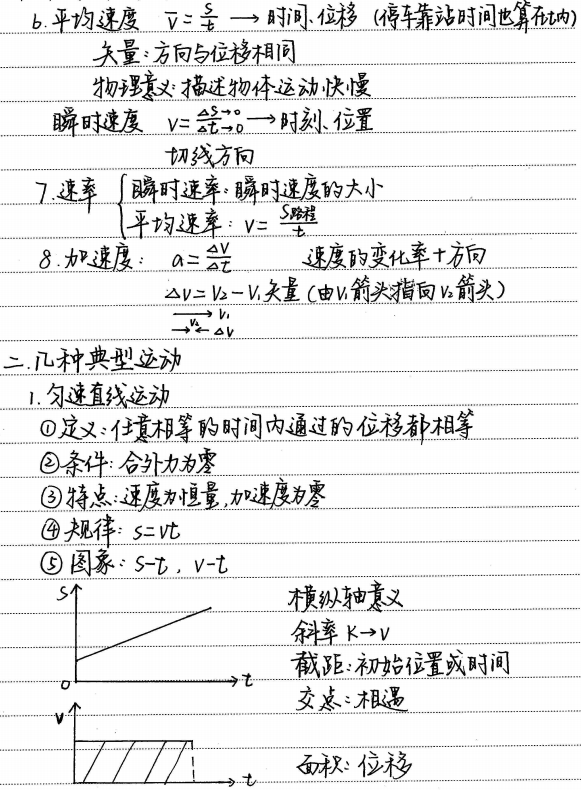 6.平均速度 v̄=s/t → 时间、位移 (停车靠站时间也算在t内)
矢量:方向与位移相同
物理意义:描述物体运动快慢
瞬时速度 v=Δs→0/Δt→0 → 时刻、位置
切线方向
7.速率 { 瞬时速率:瞬时速度的大小
平均速率:v=s路程/t
8.加速度: a=Δv/Δt 速度的变化率+方向
Δv=v₂-v₁矢量(由v₁箭头指向v₂箭头)
v₁
v₂ Δv
二.几种典型运动
1.匀速直线运动
①定义:任意相等的时间内通过的位移都相等
②条件:合外力为零
③特点:速度为恒量,加速度为零
④规律:s=vt
⑤图象:s-t,v-t
s
横纵轴意义
斜率K→v
截距:初始位置或时间
0 t
交点:相遇
v
面积:位移
t